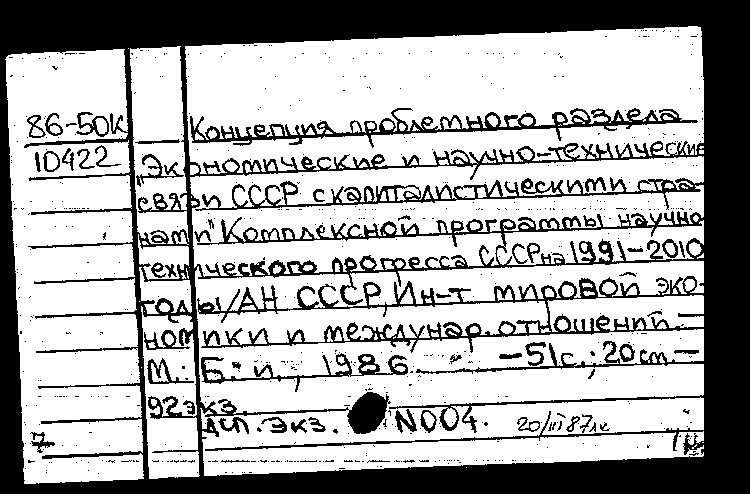 86-50К Концепция проблемного раздела
10422 "Экономические и научно-технические
связи СССР с капиталистическими стра-
нами" Комплексной программы научно-
технического прогресса СССР на 1991-2010
годы/АН СССР, Ин-т мировой эко-
номики и междунар. отношений. —
М.: Б. и., 1986. — 51с.; 20 см. —
92 экз.
ДСП. Экз. N004. 20/III 87
7